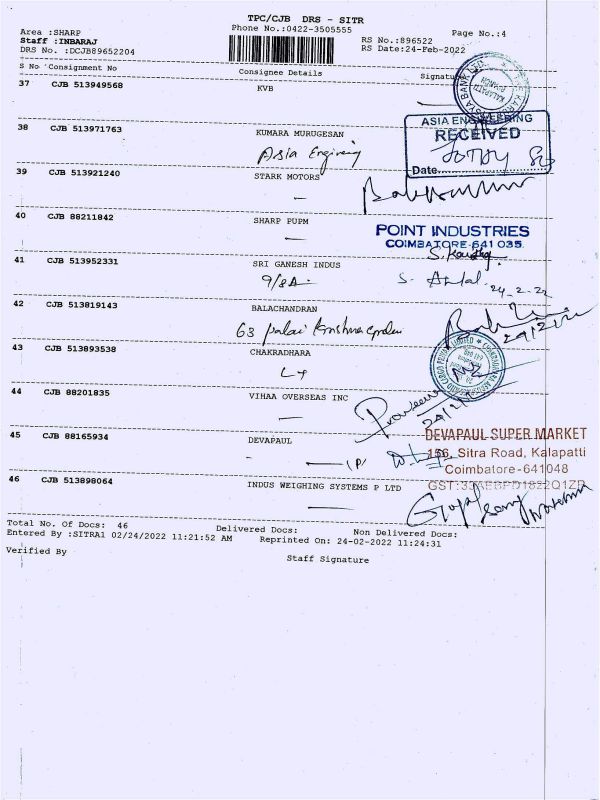 TPC/CJB DRS - SITR
Area :SHARP
Phone No.:0422-3505555
Page No.:4
Staff :INBARAJ
RS No.:896522
DRS No. :DCJB89652204
RS Date:24-Feb-2022
S No Consignment No Consignee Details Signatu
37 CJB 513949568 KVB
38 CJB 513971763 KUMARA MURUGESAN
Asia
ASIA ENGINEERING
RECEIVED
Date
39 CJB 513921240 STARK MOTORS
40 CJB 88211842 SHARP PUPM
POINT INDUSTRIES
COIMBATORE-641 035.
41 CJB 513952331 SRI GANESH INDUS
9/8A
24-2-22
42 CJB 513819143 BALACHANDRAN
63
43 CJB 513893538 CHAKRADHARA
44 CJB 88201835 VIHAA OVERSEAS INC
Praveen
45 CJB 88165934 DEVAPAUL
DEVAPAUL SUPER MARKET
156, Sitra Road, Kalapatti
Coimbatore-641048
46 CJB 513898064 INDUS WEIGHING SYSTEMS P LTD
Total No. Of Docs: 46 Delivered Docs: Non Delivered Docs:
Entered By :SITRA1 02/24/2022 11:21:52 AM Reprinted On: 24-02-2022 11:24:31
Verified By Staff Signature